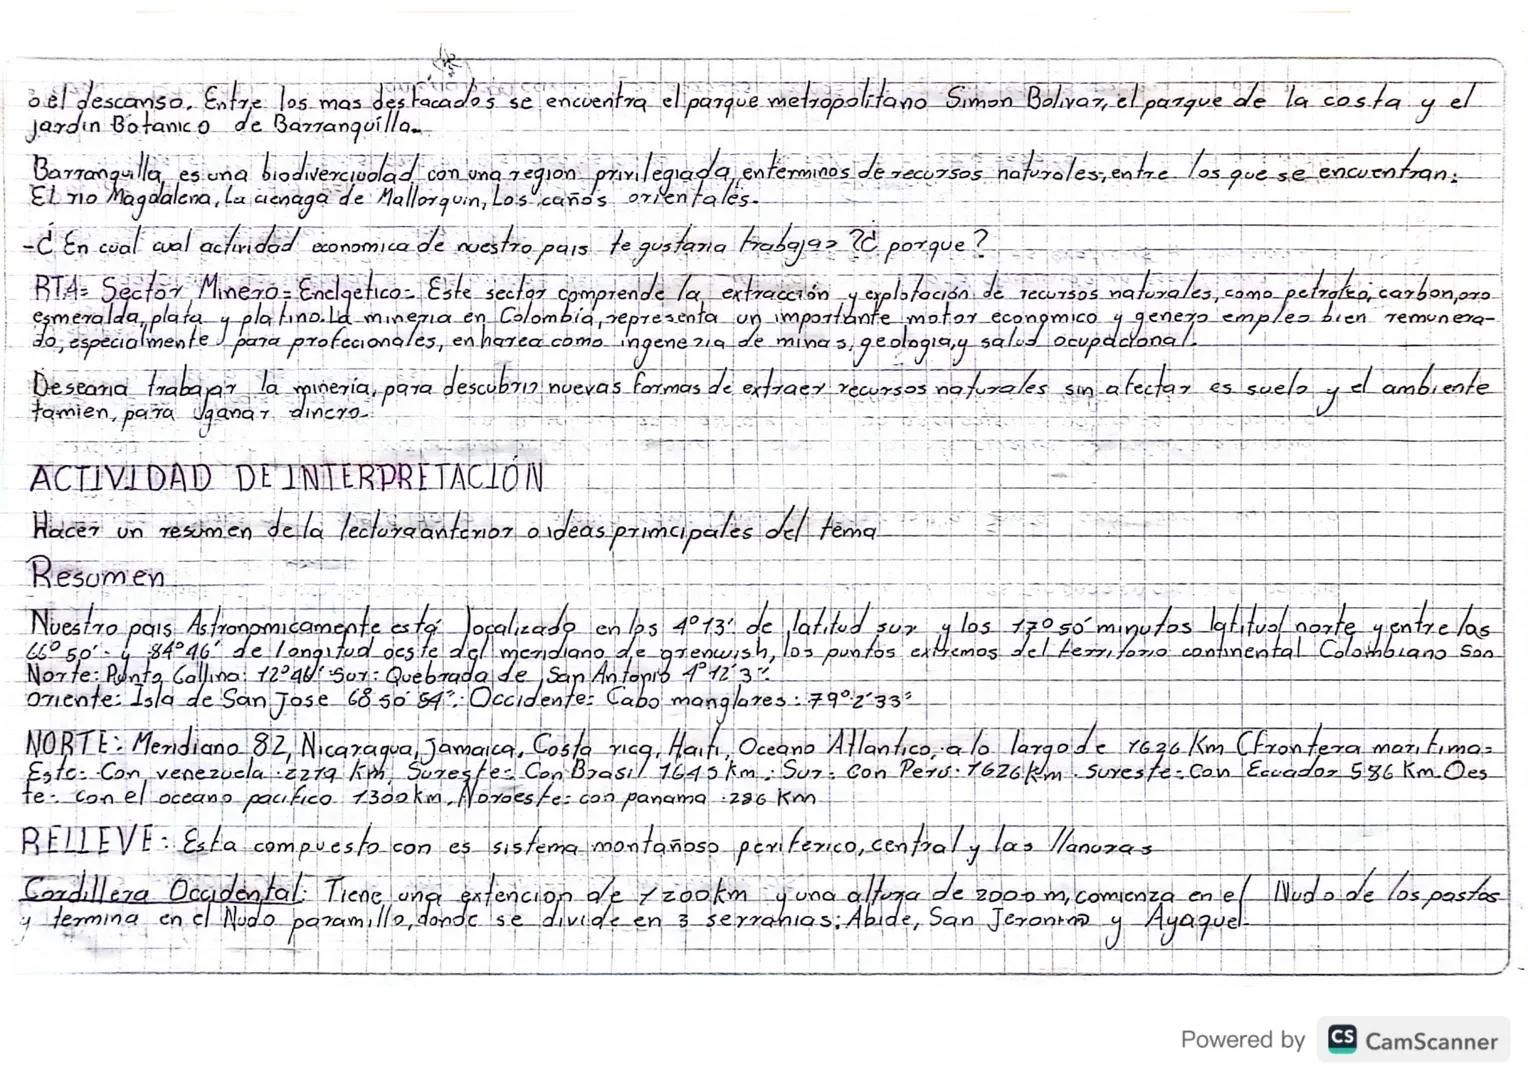 o el descanso. Entre los mas destacados se encuentra el parque metropolitano Simon Bolivar, el parque de la costa y el
jardin Botanico de Barranquilla.
Barranquilla es una biodivercidad con una region privilegiada, enterminos de recursos naturales, entre los que se encuentran:
El rio Magdalena, La cienaga de Mallorquin, Los caños orientales.
-¿ En cual cual actividad economica de nuestro pais te gustaria trabajar? ¿ porque?
RTA= Sector Minero= Enelgetico- Este sector comprende la extracción y explotación de recursos naturales, como petroleo, carbon, oro
esmeralda, plata y platino. La mineria en Colombia, representa un importante motor economico y genero empleo bien remunera-
do, especialmente para profecionales, en harea como ingeneria de minas, geologia, y salud ocupacional.
Desearia trabajar la mineria, para descubrir nuevas formas de extraer recursos naturales sin afectar es suelo y el ambiente
tamien, para ganar dinero.
ACTIVIDAD DE INTERPRETACIÓN
Hacer un resumen de la lectura anterior o ideas principales del tema
Resumen
Nuestro pais Astronomicamente está localizado en los 4°13' de latitud sur y los 17°50' minutos latitud norte y entre las
66°50' y 84°46' de longitud oeste del meridiano de grenwish, los puntos extremos del territorio continental Colombiano son
Norte: Punta Gallina: 12°46' Sur: Quebrada de San Antonio 4°12'3"
oriente: Isla de San Jose 68 50' 54": Occidente: Cabo manglares: 79°2'33"
NORTE: Meridiano 82, Nicaragua, Jamaica, Costa rica, Haiti, Oceano Atlantico, a lo largo de 1626 Km (Frontera maritima=
Este: Con venezuela :2219 Km, Sureste: Con Brasil 1645 Km: Sur: Con Peru: 1626 Km. Sureste: Con Ecuador 586 Km. Oes
te: con el oceano pacifico 1300 km, Noroeste: con panama :286 Km
RELIEVE: Esta compuesto con es sistema montañoso periferico, central y las llanuras
Cordillera Occidental: Tiene una extencion de 1200km y una altura de 2000 m, comienza en el Nudo de los pastos
y termina en el Nudo paramillo, donde se divide en 3 serranias: Abide, San Jeronimo y Ayaquel.
Powered by CS CamScanner